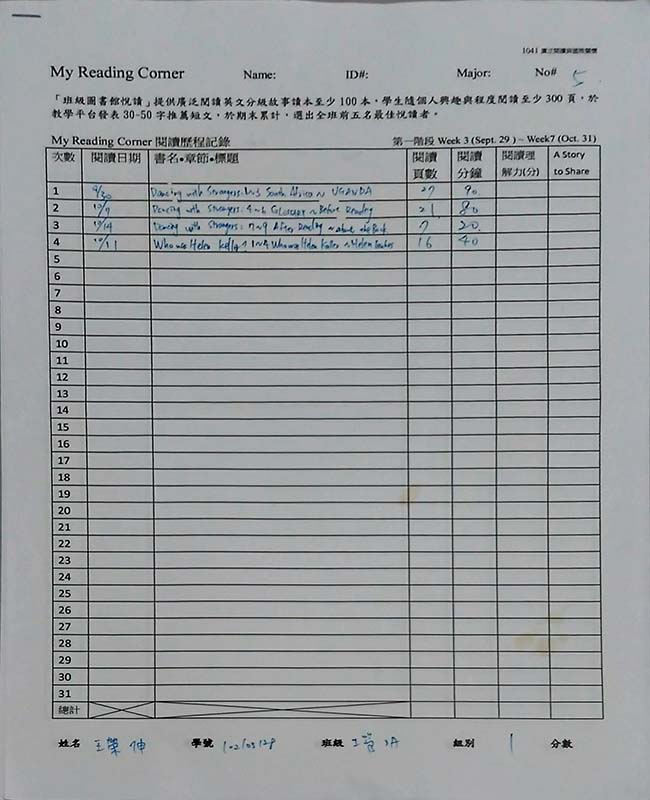 1041 廣泛閱讀與國際關懷
My Reading Corner Name: ID#: Major: No# 5
「班級圖書館悅讀」提供廣泛閱讀英文分級故事讀本至少 100 本，學生隨個人興趣與程度閱讀至少 300 頁，於
教學平台發表 30-50 字推薦短文，於期末累計，選出全班前五名最佳悅讀者。
My Reading Corner 閱讀歷程記錄 第一階段 Week 3 (Sept. 29 ) – Week7 (Oct. 31)
次數 閱讀日期 書名•章節•標題 閱讀頁數 閱讀分鐘 閱讀理解力(分) A Story to Share
1 9/30 Dancing with Strangers: 1~3 South Africa ~ UGANDA 27 90
2 10/7 Dancing with Strangers: 4~6 GLOSSARY ~ Before Reading 21 80
3 10/14 Dancing with Strangers: 7~9 After Reading ~ about the Book 7 20
4 10/11 Who was Helen Keller? 1~4 Who was Helen Keller ~ Helen 16 40
5
6
7
8
9
10
11
12
13
14
15
16
17
18
19
20
21
22
23
24
25
26
27
28
29
30
31
總計
姓名 王榮坤 學號 班級 工管 組別 1 分數